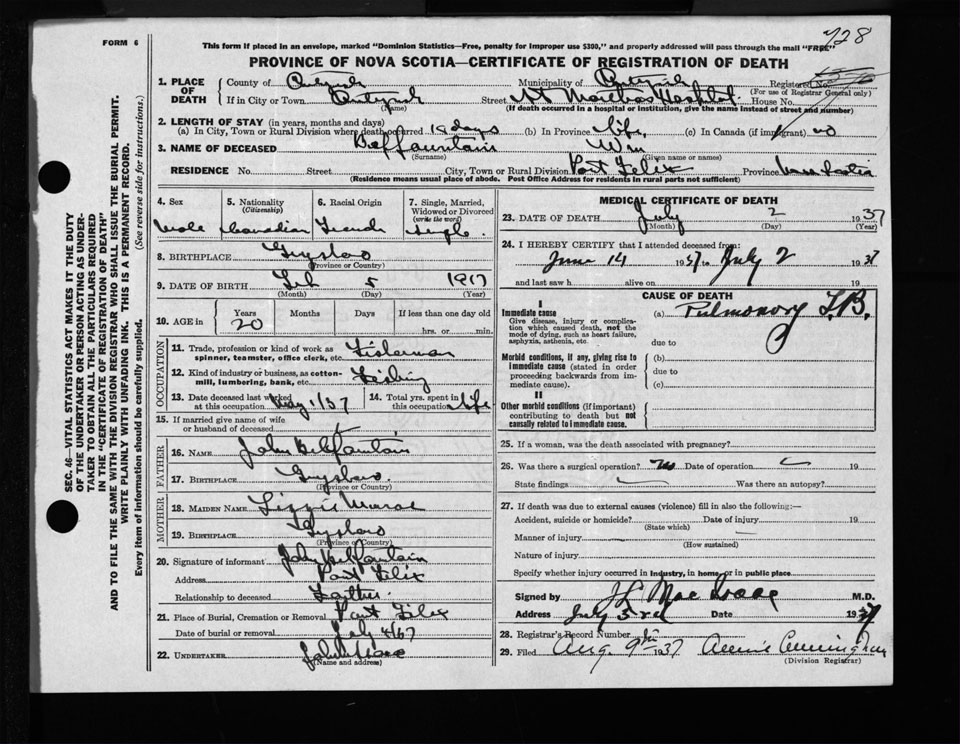 728
FORM 6
This form if placed in an envelope, marked "Dominion Statistics—Free, penalty for improper use $300," and properly addressed will pass through the mail "FREE"
PROVINCE OF NOVA SCOTIA—CERTIFICATE OF REGISTRATION OF DEATH
1. PLACE OF DEATH
County of Antigonish Municipality of Antigonish Registered No.
(For use of Registrar General only)
If in City or Town Antigonish Street St Marthas Hospital House No.
(Name) (If death occurred in a hospital or institution, give the name instead of street and number)
2. LENGTH OF STAY (in years, months and days)
(a) In City, Town or Rural Division where death occurred 18 days (b) In Province life (c) In Canada (if immigrant) no
3. NAME OF DECEASED Belfountain Wm
(Surname) (Given name or names)
RESIDENCE No. Street City, Town or Rural Division Port Felix Province Nova Scotia
(Residence means usual place of abode. Post Office Address for residents in rural parts not sufficient)
4. Sex
Male
5. Nationality
(Citizenship)
Canadian
6. Racial Origin
French
7. Single, Married, Widowed or Divorced
(write the word)
Single
8. BIRTHPLACE Guysboro
(Province or Country)
9. DATE OF BIRTH Feb 5 1917
(Month) (Day) (Year)
10. AGE in
Years Months Days If less than one day old
20 hrs. or min.
OCCUPATION
11. Trade, profession or kind of work as spinner, teamster, office clerk, etc. Fisherman
12. Kind of industry or business, as cotton-mill, lumbering, bank, etc. Fishing
13. Date deceased last worked at this occupation May 1/37 14. Total yrs. spent in this occupation life
15. If married give name of wife or husband of deceased
FATHER
16. NAME John Belfountain
17. BIRTHPLACE Guysboro
(Province or Country)
MOTHER
18. MAIDEN NAME Lizzie
19. BIRTHPLACE Guysboro
(Province or Country)
20. Signature of informant John Belfountain
Address Port Felix
Relationship to deceased Father
21. Place of Burial, Cremation or Removal Port Felix
Date of burial or removal July 4/37
22. UNDERTAKER John
(Name and address)
MEDICAL CERTIFICATE OF DEATH
23. DATE OF DEATH July 2 1937
(Month) (Day) (Year)
24. I HEREBY CERTIFY that I attended deceased from:
June 14 1937 to July 2 1937
and last saw h alive on 19
CAUSE OF DEATH
I
Immediate cause
Give disease, injury or complication which caused death, not the mode of dying, such as heart failure, asphyxia, asthenia, etc.
(a) Pulmonary T.B.
due to
Morbid conditions, if any, giving rise to immediate cause (stated in order proceeding backwards from immediate cause).
(b)
due to
(c)
II
Other morbid conditions (if important) contributing to death but not causally related to immediate cause.
25. If a woman, was the death associated with pregnancy?
26. Was there a surgical operation? no Date of operation 19
State findings Was there an autopsy?
27. If death was due to external causes (violence) fill in also the following:—
Accident, suicide or homicide? Date of injury 19
(State which)
Manner of injury
(How sustained)
Nature of injury
Specify whether injury occurred in industry, in home, or in public place
Signed by J L MacIsaac M.D.
Address July 3rd Date 1937
28. Registrar's Record Number
29. Filed Aug. 9th 1937 Annie Cunningham
(Division Registrar)
SEC. 46—VITAL STATISTICS ACT MAKES IT THE DUTY
OF THE UNDERTAKER OR PERSON ACTING AS UNDERTAKER
TO OBTAIN ALL THE PARTICULARS REQUIRED
IN THE "CERTIFICATE OF REGISTRATION OF DEATH"
AND TO FILE THE SAME WITH THE DIVISION REGISTRAR WHO SHALL ISSUE THE BURIAL PERMIT.
WRITE PLAINLY WITH UNFADING INK. THIS IS A PERMANENT RECORD.
Every item of information should be carefully supplied. (See reverse side for instructions.)